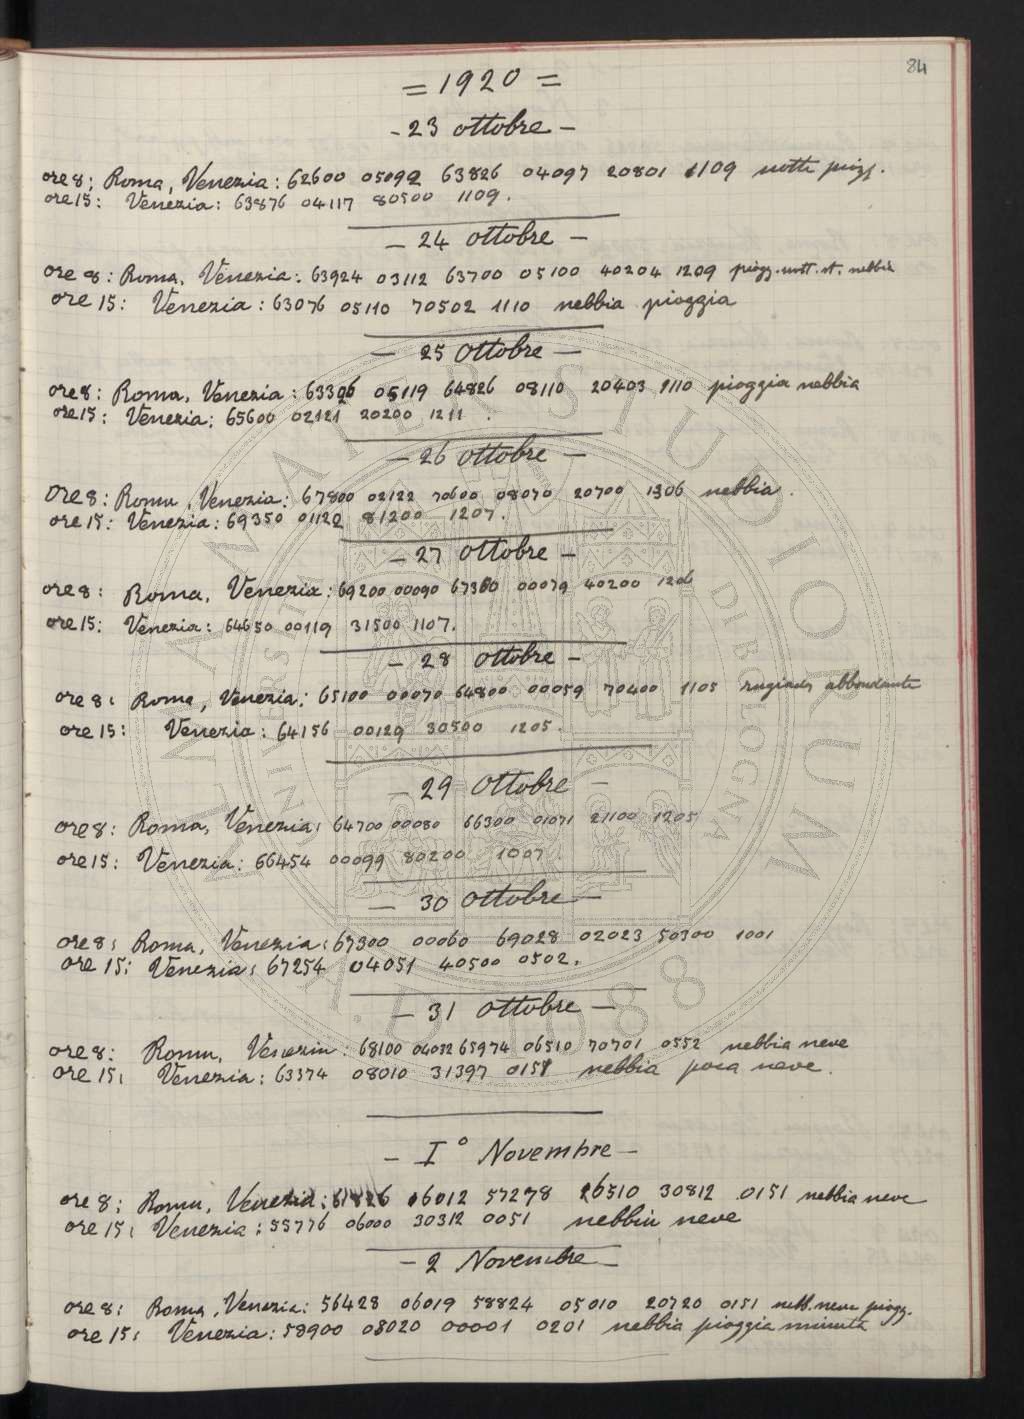 84
= 1920 =
- 23 ottobre -
ore 8: Roma, Venezia: 62600 05092 63826 04097 20801 1109 notte piogg.
ore 15: Venezia: 63876 04117 80500 1109.
- 24 ottobre -
ore 8: Roma, Venezia: 63924 03112 63700 05100 40204 1209 piogg. nott. st. nebbia
ore 15: Venezia: 63076 05110 70502 1110 nebbia pioggia
- 25 ottobre -
ore 8: Roma, Venezia: 63326 05119 64826 08110 20403 1110 pioggia nebbia
ore 15: Venezia: 65600 02121 20200 1211
- 26 ottobre -
ore 8: Roma, Venezia: 67800 02122 70600 08070 20700 1306 nebbia.
ore 15: Venezia: 69350 01122 81200 1207.
- 27 ottobre -
ore 8: Roma, Venezia: 69200 00090 67300 00079 40200 1206
ore 15: Venezia: 64650 00119 31500 1107.
- 28 ottobre -
ore 8: Roma, Venezia: 65100 00070 64800 00059 70400 1105 rugiada abbondante
ore 15: Venezia: 64156 00129 30500 1205.
- 29 ottobre -
ore 8: Roma, Venezia: 64700 00080 66300 01071 21100 1205
ore 15: Venezia: 66454 00099 80200 1007
- 30 ottobre -
ore 8: Roma, Venezia: 67300 00060 69028 02023 50300 1001
ore 15: Venezia: 67254 04051 40500 0502.
- 31 ottobre -
ore 8: Roma, Venezia: 68100 04032 65974 06510 70701 0552 nebbia neve
ore 15: Venezia: 63374 08010 31397 0151 nebbia poca neve.
- I° Novembre -
ore 8: Roma, Venezia: 61826 06012 57278 26510 30812 0151 nebbia neve
ore 15: Venezia: 55776 06000 30312 0051 nebbia neve
- 2 Novembre -
ore 8: Roma, Venezia: 56428 06019 58824 05010 20720 0151 nebb. neve piogg.
ore 15: Venezia: 58900 08020 00001 0201 nebbia pioggia minuta
ALMA MATER STUDIORUM
UNIVERSITÀ DI BOLOGNA
A.D. 1088